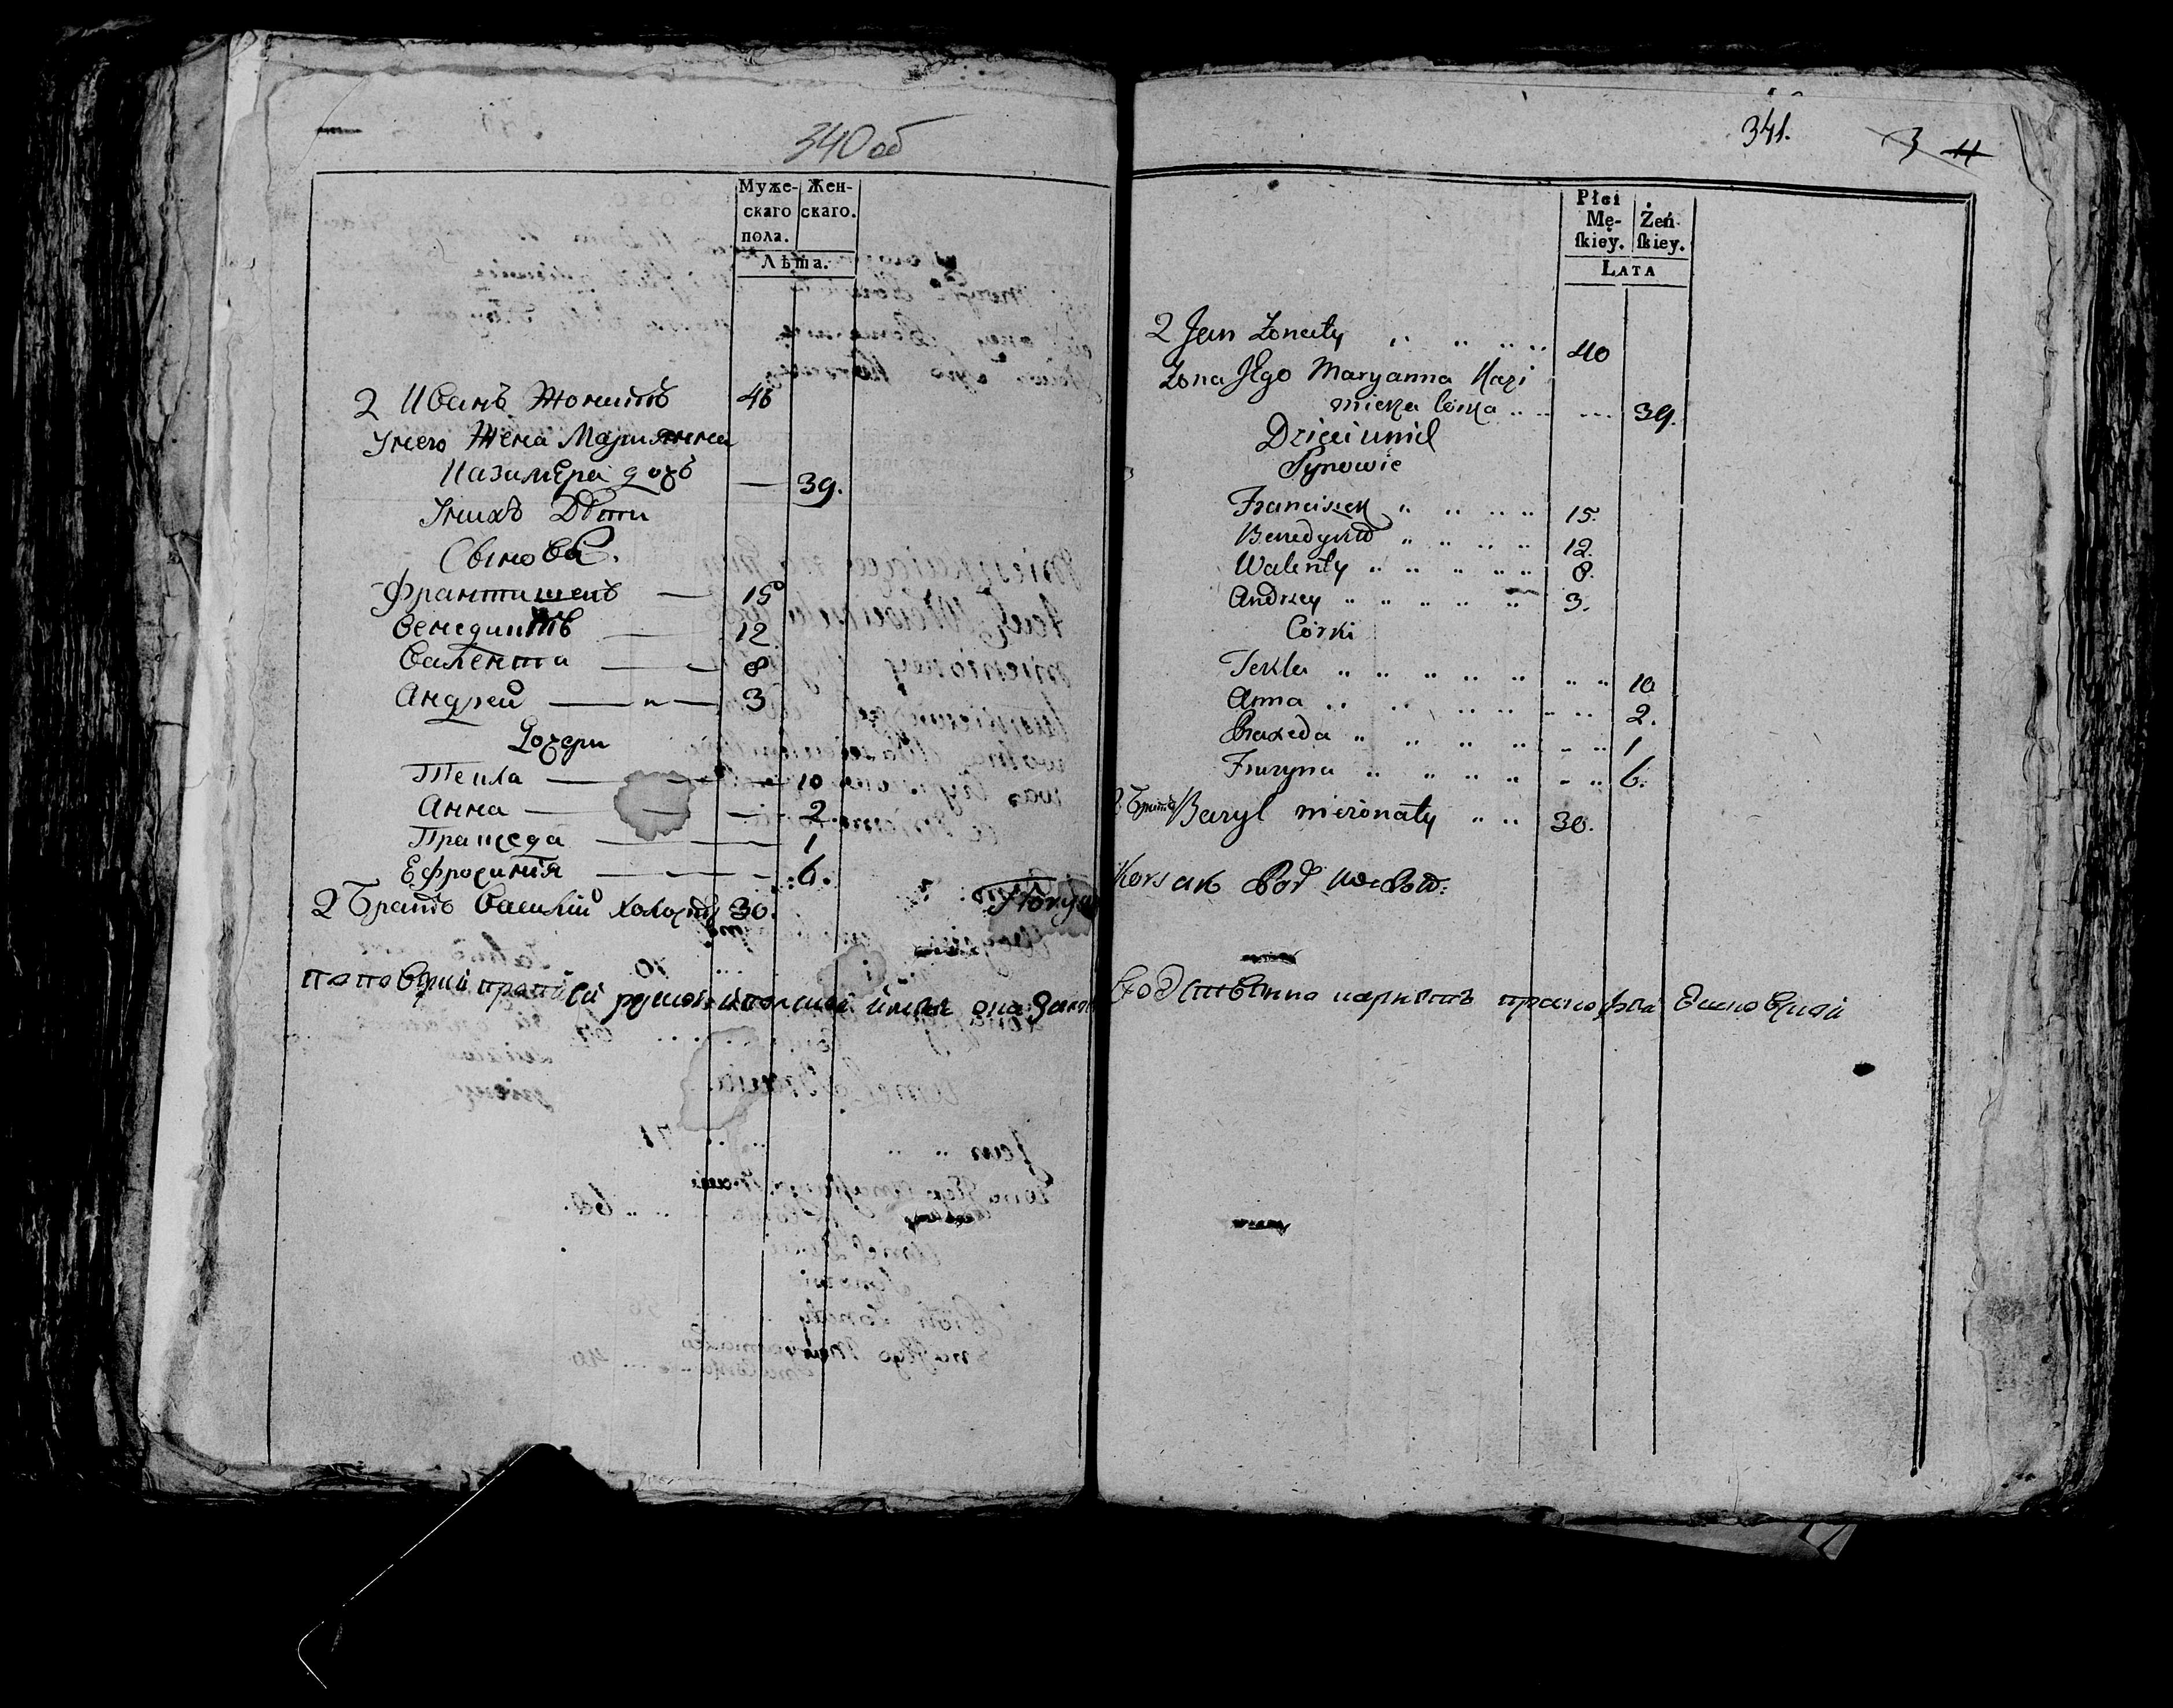 340 об
Муже-
скаго
пола.
Жен-
скаго.
Лѣта.
2 Иванъ Жонатъ 46
Унего Жена Марианна
Казимѣра дочь — 39.
Унихъ Дѣти
Сынове.
Франтишекъ — 15
Бенедиктъ — 12
Валента — 8
Андрей — „ — 3
Дочери
Текла — 10
Анна — 2
Пракседа — 1
Ефросинія — 6.
2 Братъ Василій холостъ 30.
341.
3 11
Płci
Mę-
ſkiey.
Żeń
ſkiey.
LATA
2 Jan Żonaty 40
Żona Jego Maryanna Kazi
mierza Córka 39.
Dzieci umieł
Synowie
Franciszek 15.
Benedykt 12.
Walenty 8.
Andrzey 3.
Córki
Tekla 10
Anna 2.
Praxeda 1
Fruzyna 6.
2. Братъ Bazyl nieżonaty 30.
Korsak